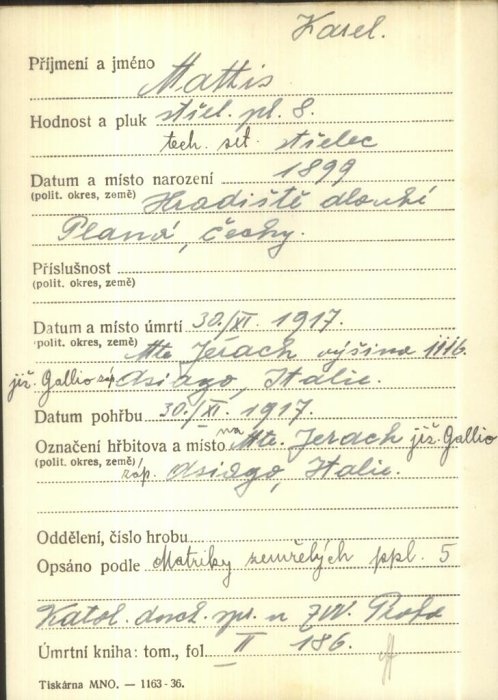 Karel.
Příjmení a jméno Mattis
Hodnost a pluk střel. pl. 8.
tech. set. střelec
Datum a místo narození 1899
(polit. okres, země) Hradiště dlouhé
Planá, Čechy.
Příslušnost
(polit. okres, země)
Datum a místo úmrtí 30./XI. 1917.
(polit. okres, země) Mte Jerach výšina 1116.
již. Gallio záp Asiago, Italie.
Datum pohřbu 30./XI. 1917.
Označení hřbitova a místo na Mte. Jerach již. Gallio
(polit. okres, země) záp. Asiago, Italie.
Oddělení, číslo hrobu
Opsáno podle Matriky zemřelých ppl. 5
Katol. duch. spr. n
Úmrtní kniha: tom., fol. II 186.
Tiskárna MNO. — 1163-36.